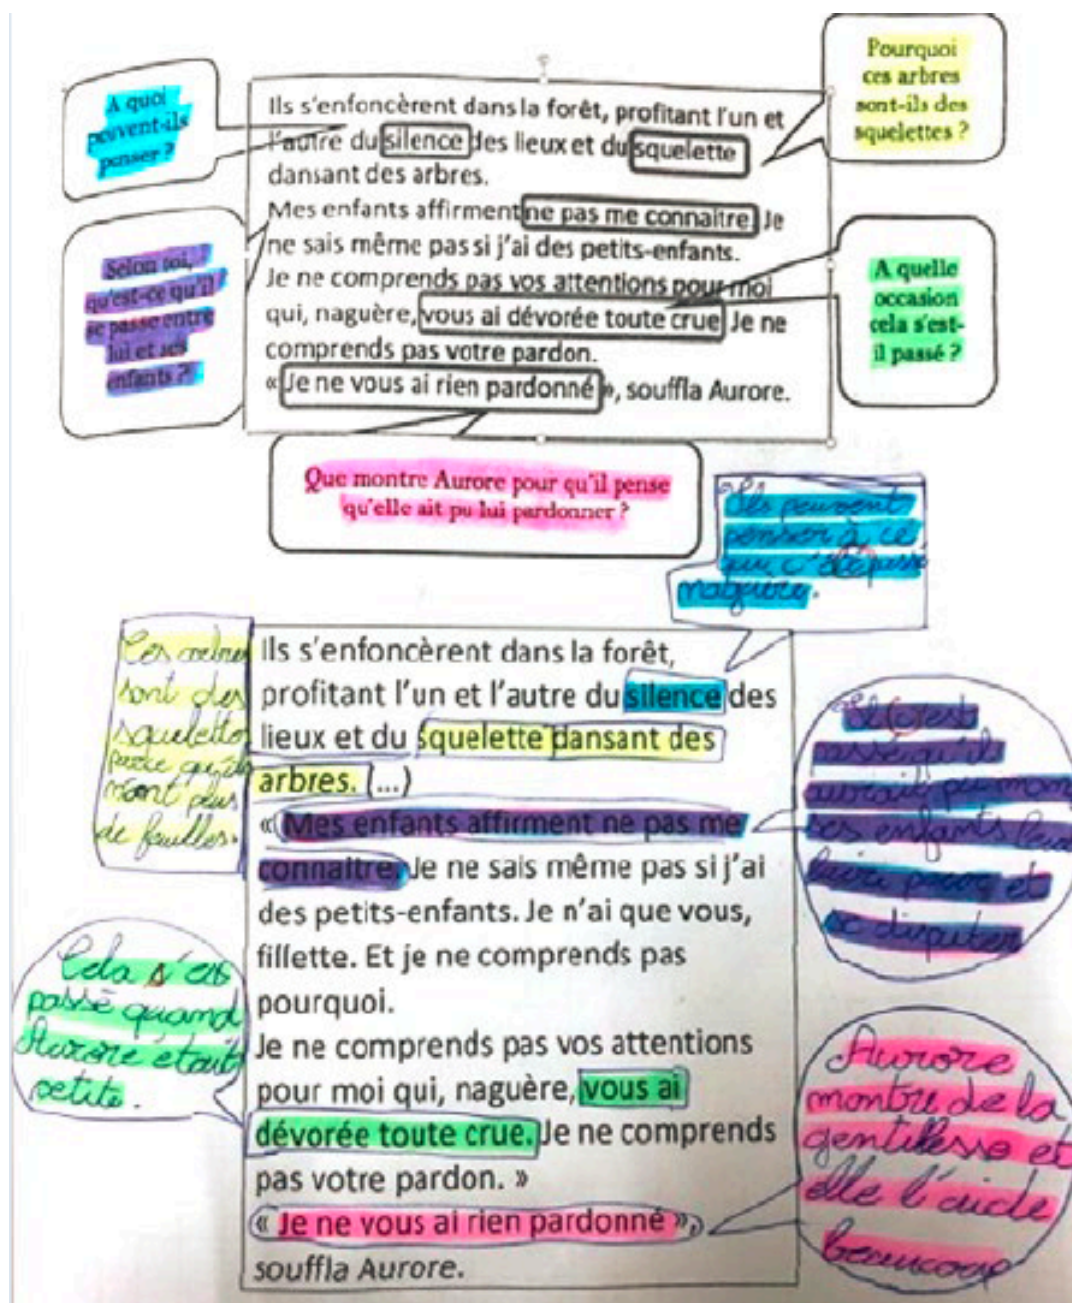 A quoi
peuvent-ils
penser ?
Pourquoi
ces arbres
sont-ils des
squelettes ?
Ils s'enfoncèrent dans la forêt, profitant l'un et
l'autre du silence des lieux et du squelette
dansant des arbres.
Mes enfants affirment ne pas me connaitre. Je
ne sais même pas si j'ai des petits-enfants.
Je ne comprends pas vos attentions pour moi
qui, naguère, vous ai dévorée toute crue. Je ne
comprends pas votre pardon.
« Je ne vous ai rien pardonné », souffla Aurore.
Selon toi,
qu'est-ce qu'il
se passe entre
lui et ses
enfants ?
A quelle
occasion
cela s'est-
il passé ?
Que montre Aurore pour qu'il pense
qu'elle ait pu lui pardonner ?
Ils peuvent
penser à ce
qui c'est passé
naguère.
Ces arbres
sont des
squelettes
parce qu'ils
n'ont plus
de feuilles.
Ils s'enfoncèrent dans la forêt,
profitant l'un et l'autre du silence des
lieux et du squelette dansant des
arbres. (...)
« Mes enfants affirment ne pas me
connaitre. Je ne sais même pas si j'ai
des petits-enfants. Je n'ai que vous,
fillette. Et je ne comprends pas
pourquoi.
Je ne comprends pas vos attentions
pour moi qui, naguère, vous ai
dévorée toute crue. Je ne comprends
pas votre pardon. »
« Je ne vous ai rien pardonné »,
souffla Aurore.
passé qu'il
aurait pu
ses enfants leur
faire peur et
se disputer
Cela s'est
passé quand
Aurore était
petite.
Aurore
montre de la
gentillesse et
elle l'aide
beaucoup